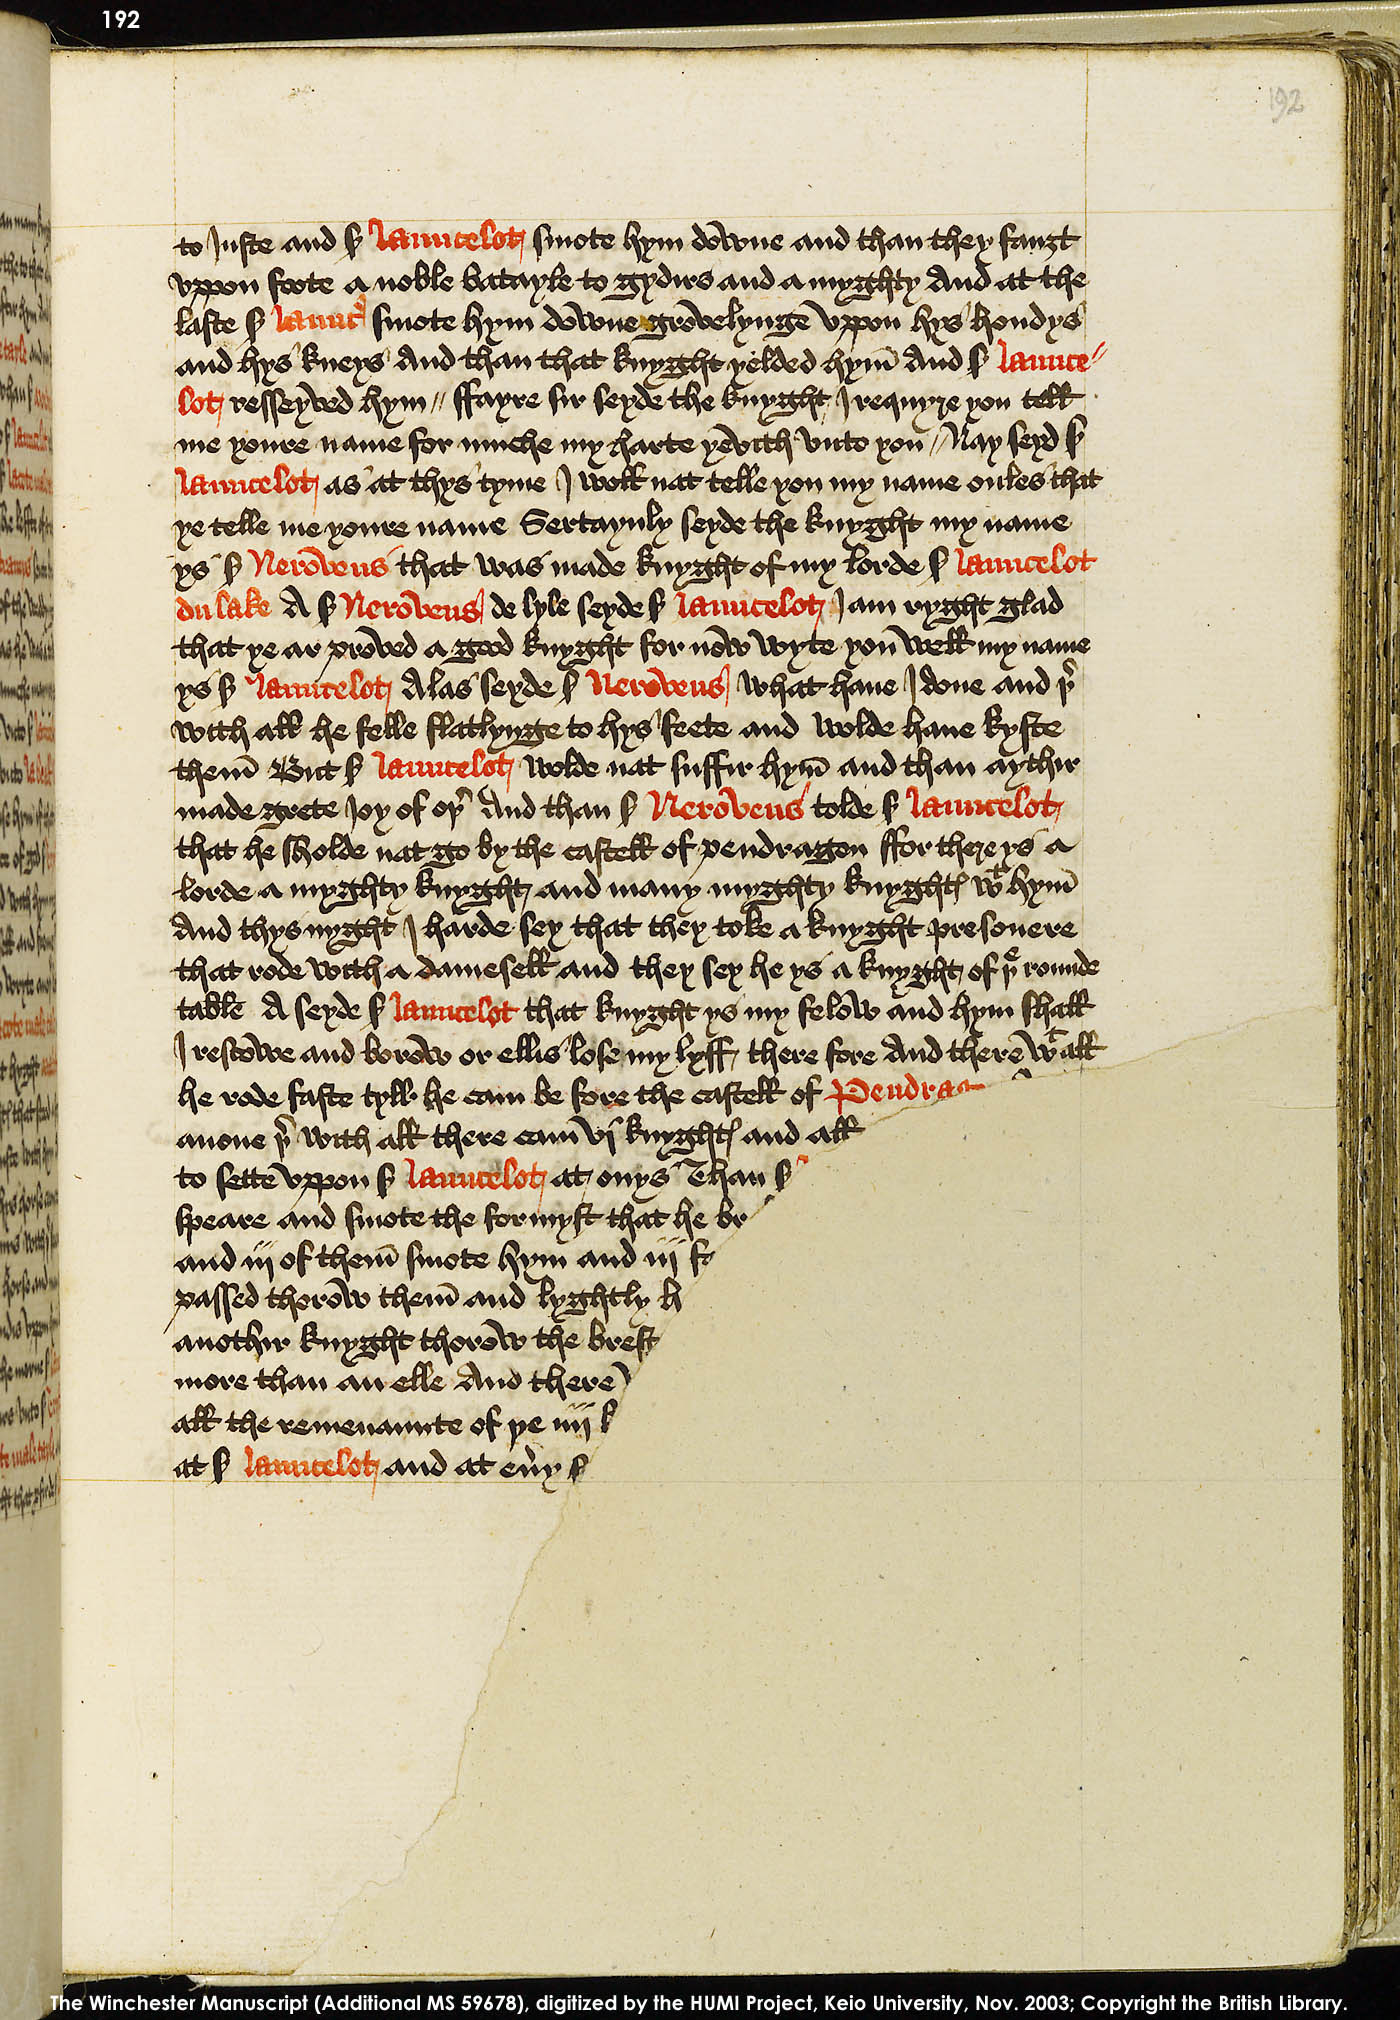 192
192
to Juste and S̄ Launcelot smote hym downe and than they fauȝt
vppon foote a noble batayle to gydirs and a myghty And at the
laste S̄ Launc̉ smote hym downe grovelynge vppon hys hondys
and hys kneys And than that knyght yelded hym̄ And S̄ Launce//
lot resseyved hym // ffayre sir seyde the knyght I requyre you tell
me youre name for muche my harte yevith vnto you // Nay seyd S̄
Launcelot as at thys tyme I woll nat telle you my name onles that
ye telle me youre name Sertaynly seyde the knyght my name
ys S̄ Neroveus that was made knyght of my lorde S̄ Launcelot
du lake A S̄ Neroveus de lyle seyde S̄ Launcelot I am ryght glad
that ye ar proved a good knyght for now wyte you well my name
ys S̄ Launcelot Alas seyde S̄ Neroveus what haue I done and þ̉
with all he felle flatlynge to hys feete and wolde haue kyste
them̄ But S̄ Launcelot wolde nat suffir hym̄ and than aythir
made grete Joy of oþ̉ And than S̄ Neroveus tolde S̄ Launcelot
that he sholde nat go by the castell of pendragon ffor there ys a
lorde a myghty knyght and many myghty knyghtꝭ wᵗ hym̄
And thys nyght I harde sey that they toke a knyght presonere
that rode with a damesell and they sey he ys a knyght of þᵉ rounde
table A seyde S̄ Launcelot that knyght ys my felow and hym shall
I rescowe and borow or ellis lose my lyff there fore And there wᵗ all
he rode faste tyll he cam be fore the castell of Pendrag
anone þ̉ with all there cam vj knyghtꝭ and all
to sette vppon S̄ Launcelot at onys Than S̄
speare and smote the formyst that he br
and iij of them̄ smote hym and iij fa
passed thorow them̄ and lyghtly h
anothir knyght thorow the brest
more than an elle And there
all the remenaunte of þe iiij k
at S̄ Launcelot and at eūy s
The Winchester Manuscript (Additional MS 59678), digitized by the HUMI Project, Keio University, Nov. 2003; Copyright the British Library.